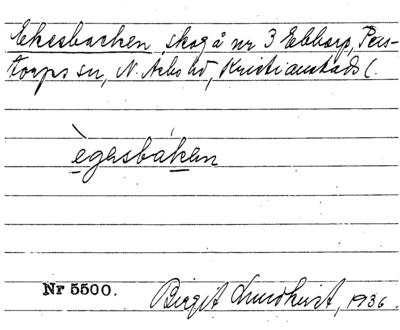 Ekesbacken, skog å nr 3 Ebbarp, Pers-
torps sn, N. Åsbo hd, Kristianstads l.
ègasbáken
Nr 5500.
Birgit Lundkvist, 1936.